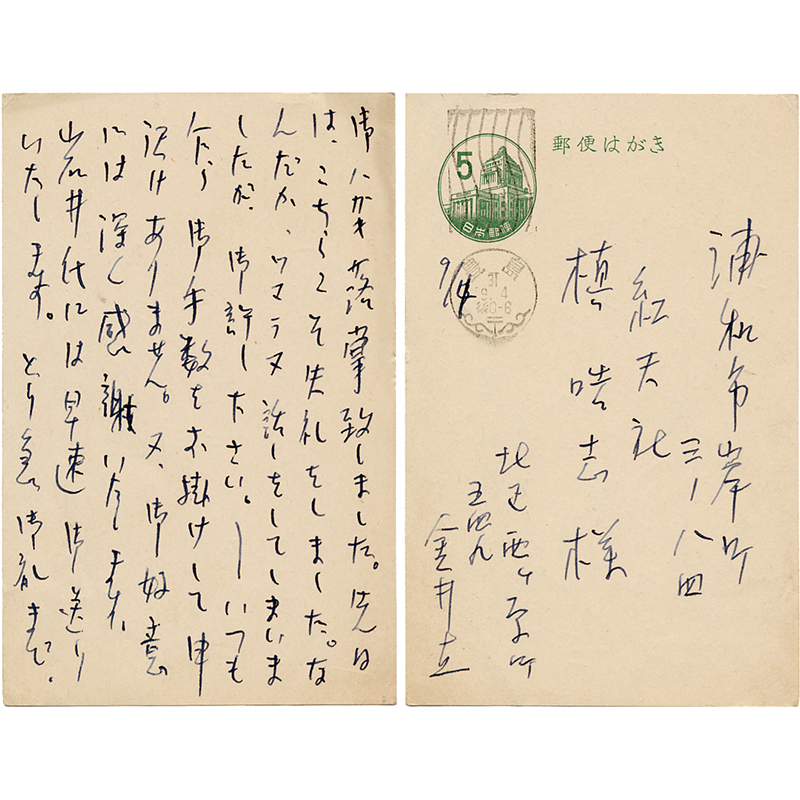 御ハガキ落掌致しました。先日
は、こちらこそ失礼をしました。な
んだか、ツマラヌ話しをしてしまいま
したが、御許し下さい。――いつも
乍ら御手数をお掛けして申
訳けありません。又、御好意
には深く感謝いたします。
山石井氏には早速御送り
いたします。とり急ぎ御礼まで。
郵便はがき
5
日本郵便
豊島
37
9.4
後0-6
9/4
浦和市岸町
三ノ八四
紅天社
槙晧志様
北区西ヶ原町
五四九
金井立